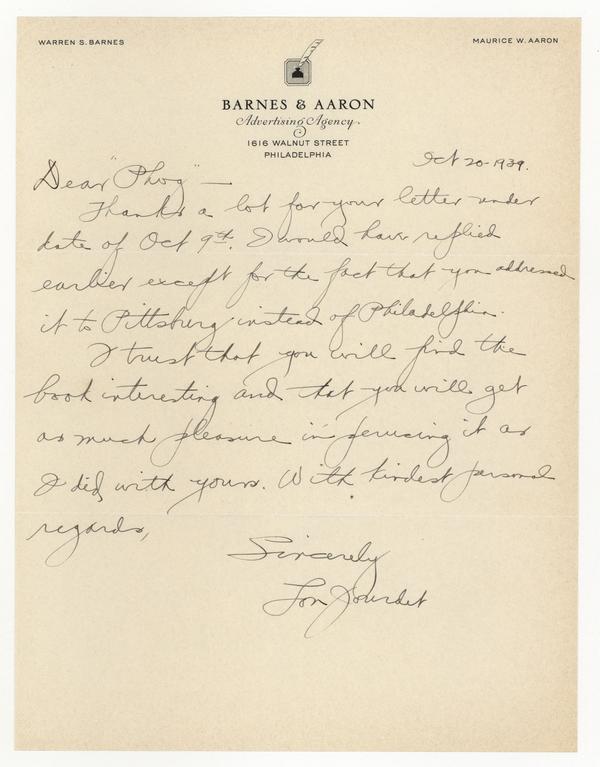 WARREN S. BARNES
MAURICE W. AARON
BARNES & AARON
Advertising Agency
1616 WALNUT STREET
PHILADELPHIA
Oct 20-1939.
Dear "Phog" —
Thanks a lot for your letter under
date of Oct 9th. I would have replied
earlier except for the fact that you addressed
it to Pittsburg instead of Philadelphia.
I trust that you will find the
book interesting and that you will get
as much pleasure in perusing it as
I did with yours. With kindest personal
regards,
Sincerely
Lon Jourdet